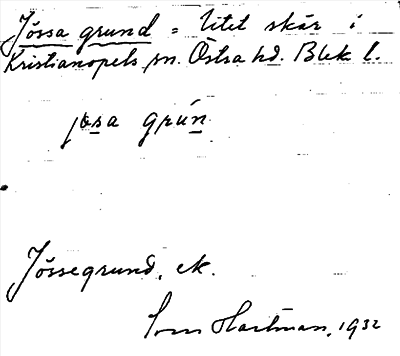 Jössa grund = litet skär i
Kristianopels sn. Östra hd. Blek l.
jøsa grún
Jössegrund, ek.
Sven Hartman, 1932